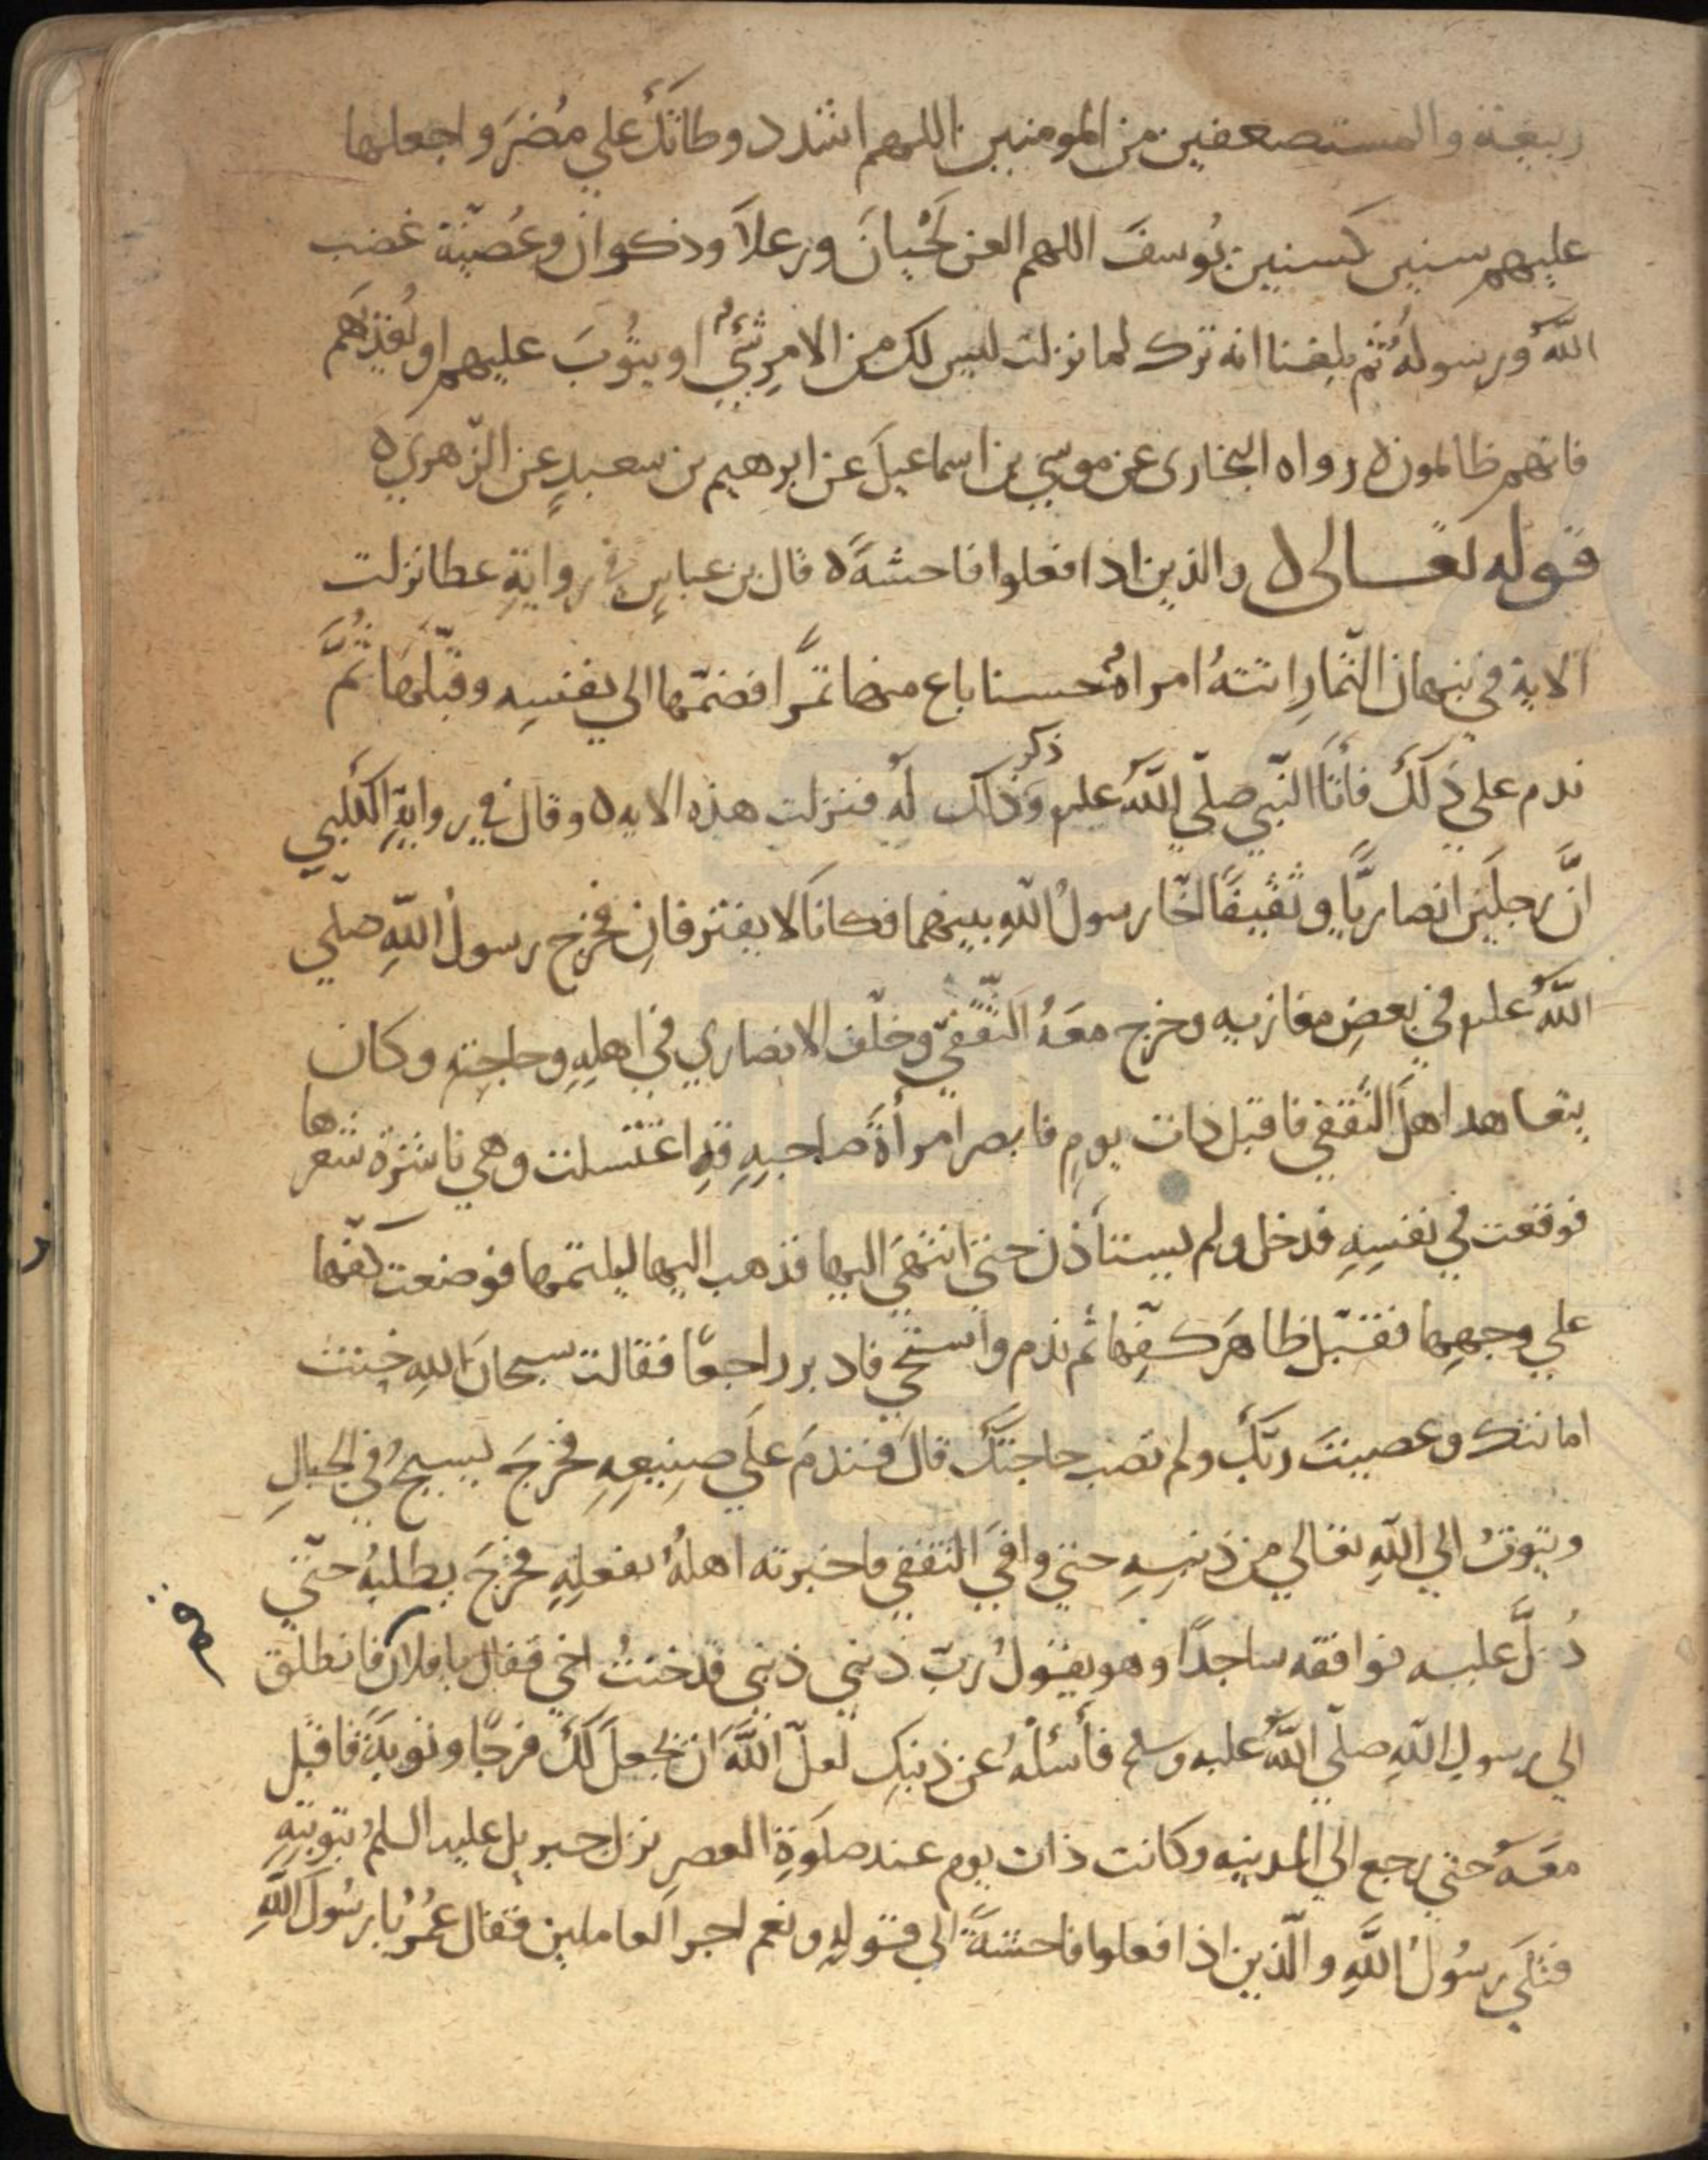 ربيعة والمستضعفين من المومنين اللهم اشدد وطاتَكَ علي مُضَر واجعلها
عليهم سنين كسنين يُوسفَ اللهم العن لَحْيانَ ورعلاً وذكوان وعُصَيَّة غضب
اللَّهُ ورسولُهُ ثم بلغنا انه ترك لما نزلت ليس لك من الامرِ شيءٌ او يتُوبَ عليهم او يُعَذِّبَهُم
فانهم ظالمون ه رواه البخارى عن موسي بن اسماعيلَ عن ابرهيم بن سعيدٍ عن الزّهري ه
قوله تعــالى ه والذين اذا فعلوا فاحشةً ه قال بن عباسٍ في روايةِ عطا نزلت
الاية في نبهان التّمارِ اتتهُ امراةٌ حسنا باع منها تمرًا فضمّها الي نفسِه وقبّلها ثُمَّ
ندم علي ذلكَ فأتا النّبي صلّي اللَّهُ عليه وذكر ذلك لَهُ فنزلت هذه الايه ه وقال في روايةِ الكلبي
انَّ رجلَين انصاريًّا وثقيفًا اخا رسولُ اللّهِ بينهما فكانَا لا يفترقانِ فخرج رسولُ اللّهِ صلّي
اللَّهُ عليه في بعضِ مغازيه وخرج معَهُ الثّقفيّ وخلّف الانصاري في اهلِهِ وحاجتِه وكان
يتعاهد اهلَ الثّقفي فاقبل ذات يومٍ فابصر امرأةَ صاحبِهِ قدِ اغتسلت وهي ناشرة شعرها
فوقعت في نفسِهِ فدخل ولم يستأذن حتي انتهَي اليها فذهب اليها ليلثمها فوضعت كفّها
علي وجهِها فقبّل ظاهرَ كفِّها ثم ندم واستحي فادبر راجعًا فقالت سبحانَ اللهِ خنت
امانتك وعصيتَ ربّكَ ولم تصب حاجتكَ قالَ فندمَ علَي صنِيعِهِ فخرجَ يسيحُ في الجبالِ
ويتوبُ الي اللّهِ تعالي من ذنبِهِ حتي وافَي الثقفي فاخبرته اهلُهُ بفعلِهِ فخرجَ يطلبُهُ حتّي
دُلَّ عليه فوافقه ساجدًا وهو يقولُ ربّ ذنبي ذنبي قد خنتُ اخي فقال يا فلان فانطلق
الي رسولِ اللّهِ صلّي اللَّهُ عليه وسلم فأسئلْهُ عن ذنبكِ لعلّ اللَّهَ ان يجعلَ لكَ فرجًا وتوبةً فاقبل
معَهُ حتي رجع الي المدينه وكانت ذات يوم عند صلوةِ العصرِ نزل جبريل عليه السلمُ بتوبتِهِ
فتلَي رسُولُ اللَّهِ والّذين اذا فعلوا فاحشةً الي قولِهِ ونعم اجر العاملين فقال عُمَرُ يا رسُولَ اللَّهِ